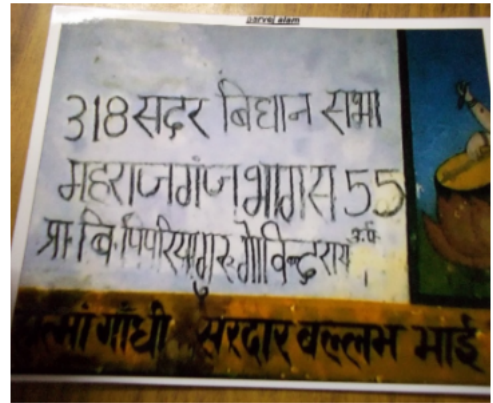 parvej alam
318 सदर बिधान सभा
महराजगंज भाग स 55
प्रा. बि. पिपरिया गुरु गोविन्द राय
त्मां गाँधी सरदार बल्लभ भाई